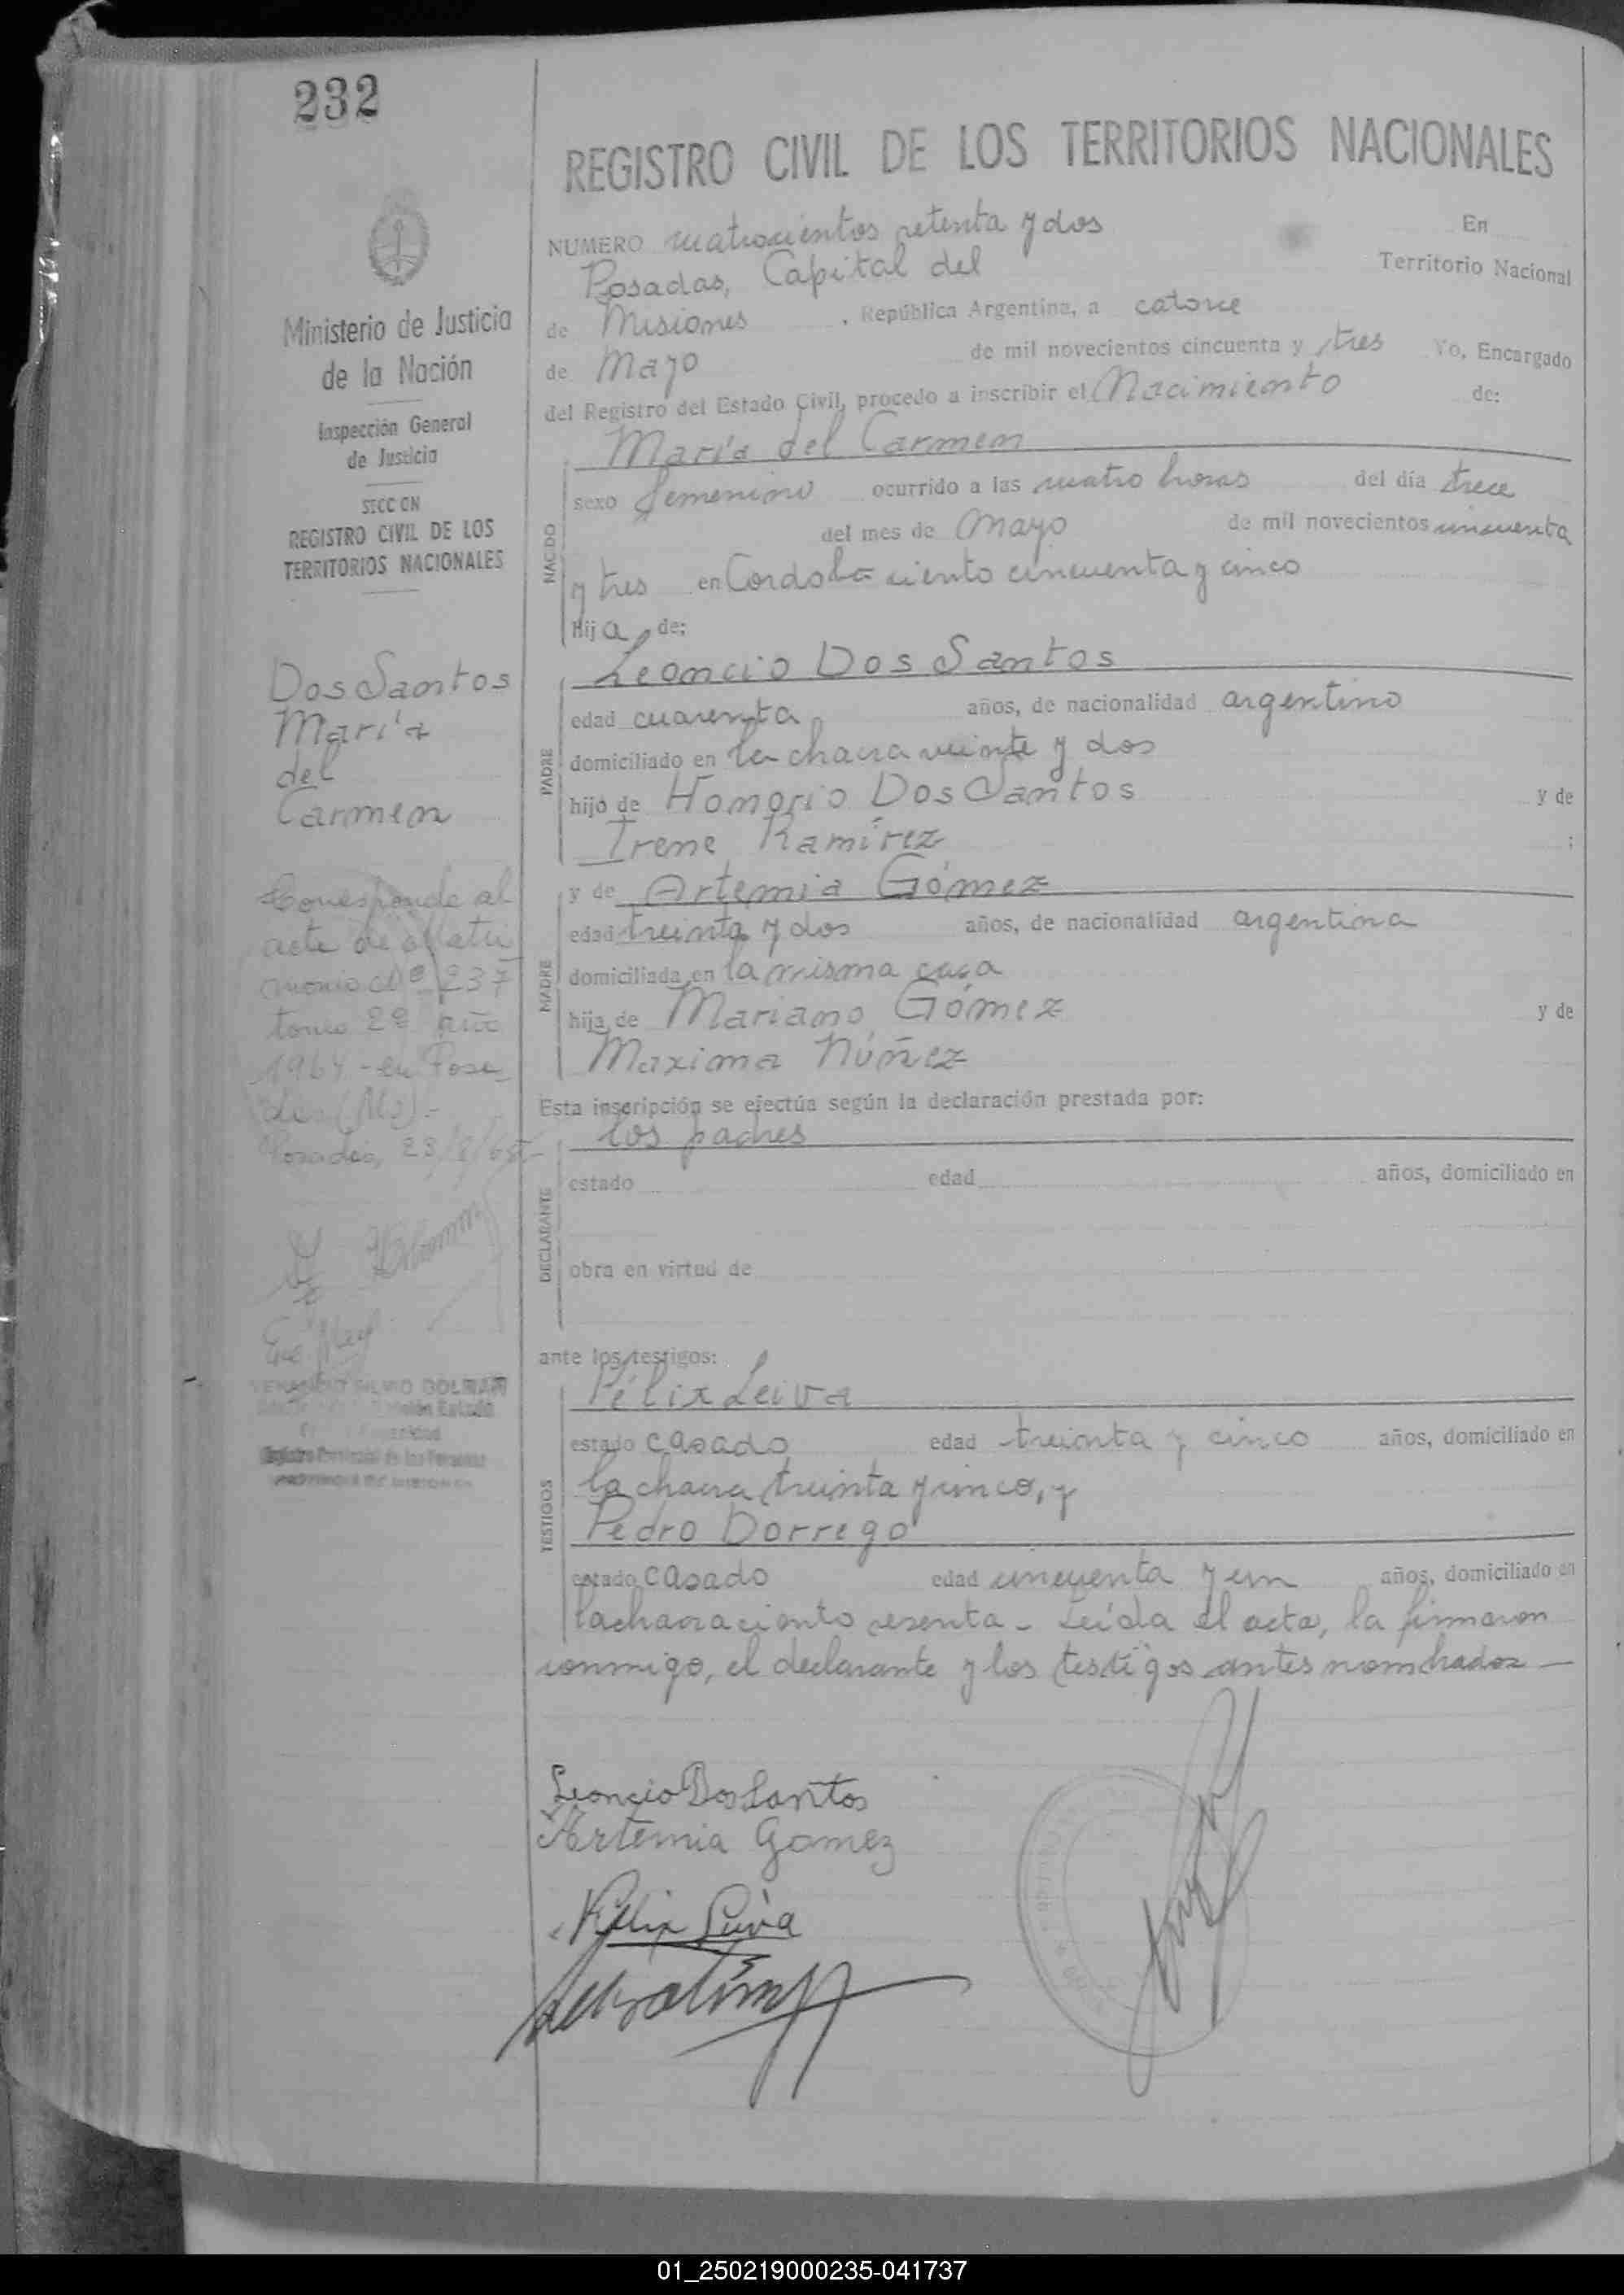 232
REGISTRO CIVIL DE LOS TERRITORIOS NACIONALES
NUMERO cuatrocientos setenta y dos En
Posadas, Capital del Territorio Nacional
de Misiones , República Argentina, a catorce
de Mayo de mil novecientos cincuenta y tres Yo, Encargado
del Registro del Estado Civil, procedo a inscribir el Nacimiento de:
María del Carmen
sexo femenino ocurrido a las cuatro horas del día trece
del mes de Mayo de mil novecientos cincuenta
NACIDO
y tres en Cordoba ciento cincuenta y cinco
Hija de:
Leoncio Dos Santos
edad cuarenta años, de nacionalidad argentino
PADRE
domiciliado en la chacra veinte y dos
hijo de Honorio Dos Santos y de
Irene Ramírez ;
y de Artemia Gómez
edad treinta y dos años, de nacionalidad argentina
MADRE
domiciliada en la misma casa
hija de Mariano Gómez y de
Maxima Núñez
Esta inscripción se efectúa según la declaración prestada por:
los padres
estado edad años, domiciliado en
DECLARANTE
obra en virtud de
ante los testigos:
Félix Leiva
estado casado edad treinta y cinco años, domiciliado en
TESTIGOS
la chacra treinta y cinco, y
Pedro Dorrego
estado casado edad cincuenta y un años, domiciliado en
la chacra ciento sesenta - Leída el acta, la firmaron
conmigo, el declarante y los testigos antes nombrados —
Leoncio Dos Santos
Artemia Gomez
Felix Leiva
Ministerio de Justicia
de la Nación
Inspección General
de Justicia
SECCION
REGISTRO CIVIL DE LOS
TERRITORIOS NACIONALES
Dos Santos
María
del
Carmen
Corresponde al
acta de Matri
monio Nº 237
tomo 2º año
1964 - en Posa
das (Ms) -
Posadas, 23/8/65-
01_250219000235-041737